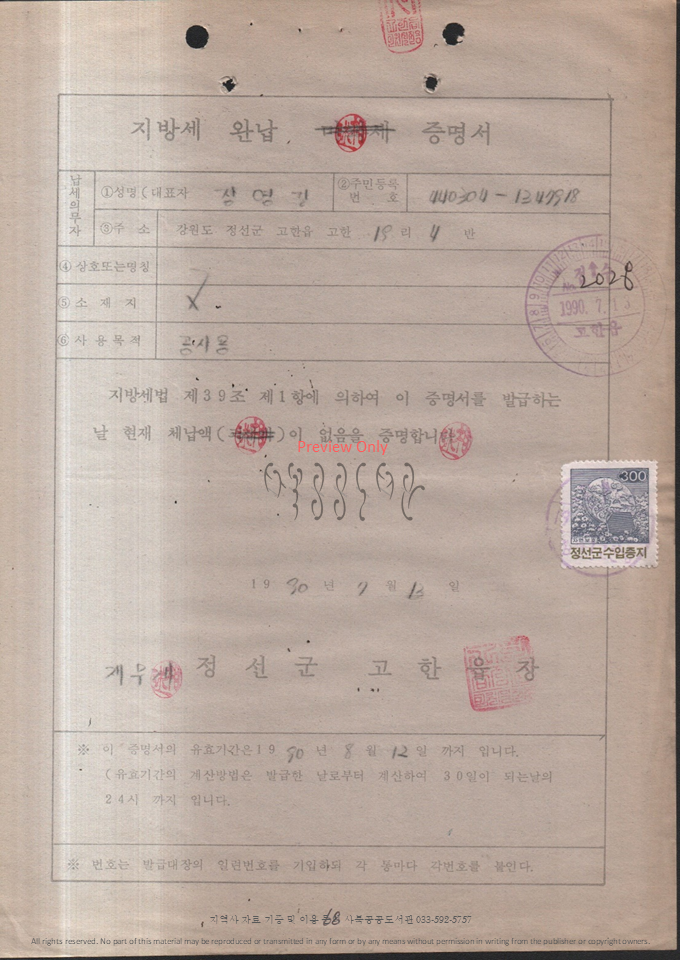 지방세 완납 증명서
납세의무자
①성명(대표자 장영길
②주민등록번호 440304-1347918
③주 소 강원도 정선군 고한읍 고한 19 리 4 반
④상호또는명칭
⑤소 재 지
⑥사용목적 공사용
2028
1990. 7. 13
고한읍
지방세법 제39조 제1항에 의하여 이 증명서를 발급하는
날 현재 체납액( )이 없음을 증명합니다
Preview Only
300
정선군수입증지
19 90 년 7 월 13 일
정 선 군 고 한 읍 장
※ 이 증명서의 유효기간은19 90 년 8 월 12일 까지 입니다.
(유효기간의 계산방법은 발급한 날로부터 계산하여 30일이 되는날의
24시 까지 입니다.
※ 번호는 발급대장의 일련번호를 기입하되 각 통마다 각번호를 붙인다.
지역사 자료 기증 및 이용 68 사북공공도서관 033-592-5757
All rights reserved. No part of this material may be reproduced or transmitted in any form or by any means without permission in writing from the publisher or copyright owners.